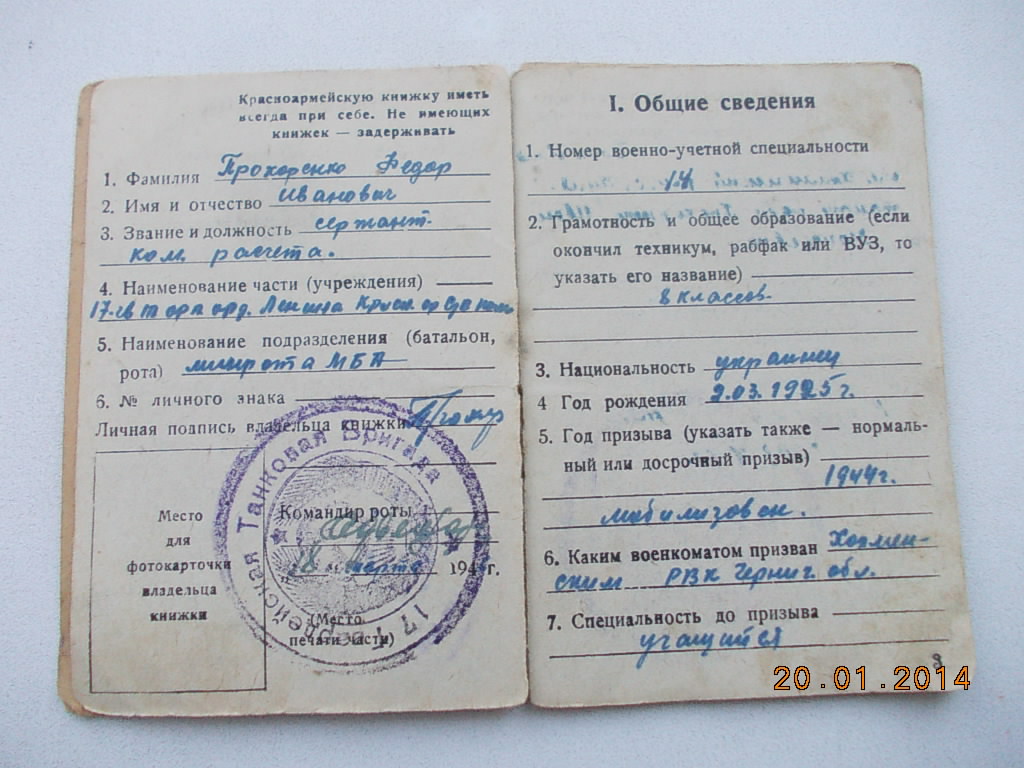 Красноармейскую книжку иметь
всегда при себе. Не имеющих
книжек — задерживать
1. Фамилия Прохоренко Федор
2. Имя и отчество Иванович
3. Звание и должность сержант
ком. расчета.
4. Наименование части (учреждения)
17-гв орд. Ленина Красн.
5. Наименование подразделения (батальон,
рота) минрота МБА
6. № личного знака
Личная подпись владельца книжки
Место
для
фотокарточки
владельца
книжки
Командир роты
18 марта 194 г.
(Место
печати части)
17 Гвардейская Танковая Бригада
I. Общие сведения
1. Номер военно-учетной специальности
14
2. Грамотность и общее образование (если
окончил техникум, рабфак или ВУЗ, то
указать его название)
8 классов.
3. Национальность украинец
4 Год рождения 9.03.1925г.
5. Год призыва (указать также — нормаль-
ный или досрочный призыв)
1944г.
мобилизован.
6. Каким военкоматом призван Холмен-
ским РВК Черниг. обл.
7. Специальность до призыва
учащийся
20.01.2014